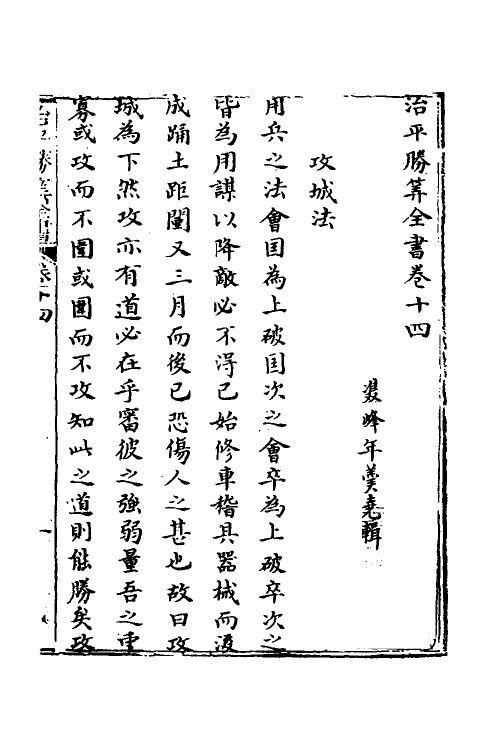 治平勝筭全書卷十四
雙峰年羹堯輯
攻城法
用兵之法會囯為上破囯次之會卒為上破卒次之
皆為用謀以降敵必不得已始修車稽具器械而後
成踊土距闉又三月而後已恐傷人之甚也故曰攻
城為下然攻亦有道必在乎審彼之強弱量吾之重
寡或攻而不圍或圍而不攻知此之道則能勝矣攻
治平勝筭全書 卷十四 一